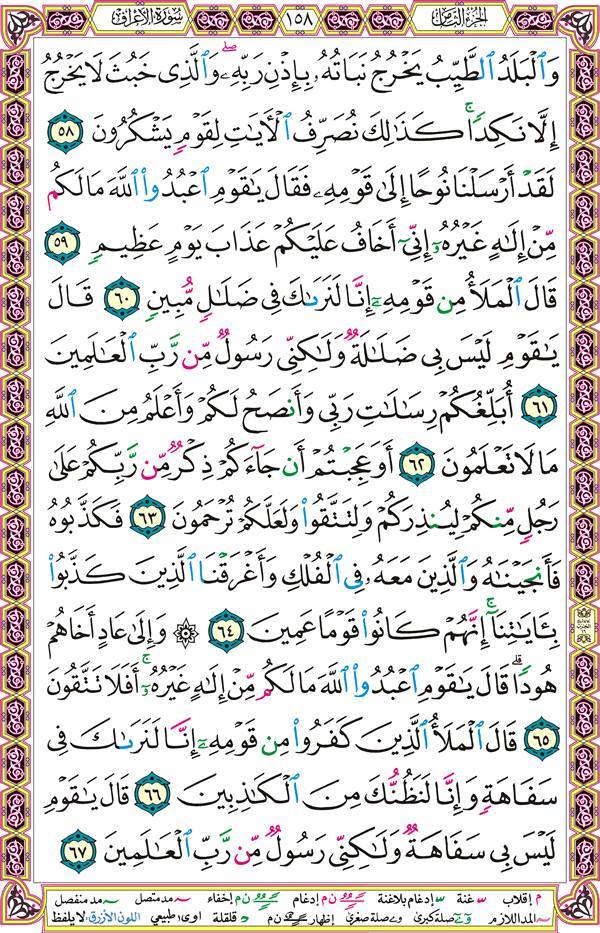 الجزء الثامن
١٥٨
سورة الأعراف
وَٱلۡبَلَدُ ٱلطَّيِّبُ يَخۡرُجُ نَبَاتُهُۥ بِإِذۡنِ رَبِّهِۦۖ وَٱلَّذِى خَبُثَ لَا يَخۡرُجُ
إِلَّا نَكِدٗاۚ كَذَٰلِكَ نُصَرِّفُ ٱلۡأٓيَٰتِ لِقَوۡمٖ يَشۡكُرُونَ ٥٨
لَقَدۡ أَرۡسَلۡنَا نُوحًا إِلَىٰ قَوۡمِهِۦ فَقَالَ يَٰقَوۡمِ ٱعۡبُدُواْ ٱللَّهَ مَا لَكُم
مِّنۡ إِلَٰهٍ غَيۡرُهُۥٓ إِنِّىٓ أَخَافُ عَلَيۡكُمۡ عَذَابَ يَوۡمٍ عَظِيمٖ ٥٩
قَالَ ٱلۡمَلَأُ مِن قَوۡمِهِۦٓ إِنَّا لَنَرَىٰكَ فِى ضَلَٰلٖ مُّبِينٖ ٦٠ قَالَ
يَٰقَوۡمِ لَيۡسَ بِى ضَلَٰلَةٞ وَلَٰكِنِّى رَسُولٞ مِّن رَّبِّ ٱلۡعَٰلَمِينَ
٦١ أُبَلِّغُكُمۡ رِسَٰلَٰتِ رَبِّى وَأَنصَحُ لَكُمۡ وَأَعۡلَمُ مِنَ ٱللَّهِ
مَا لَا تَعۡلَمُونَ ٦٢ أَوَعَجِبۡتُمۡ أَن جَآءَكُمۡ ذِكۡرٞ مِّن رَّبِّكُمۡ عَلَىٰ
رَجُلٖ مِّنكُمۡ لِيُنذِرَكُمۡ وَلِتَتَّقُواْ وَلَعَلَّكُمۡ تُرۡحَمُونَ ٦٣ فَكَذَّبُوهُ
فَأَنجَيۡنَٰهُ وَٱلَّذِينَ مَعَهُۥ فِى ٱلۡفُلۡكِ وَأَغۡرَقۡنَا ٱلَّذِينَ كَذَّبُواْ
بِـَٔايَٰتِنَآۚ إِنَّهُمۡ كَانُواْ قَوۡمًا عَمِينَ ٦٤ ۞ وَإِلَىٰ عَادٍ أَخَاهُمۡ
هُودٗاۚ قَالَ يَٰقَوۡمِ ٱعۡبُدُواْ ٱللَّهَ مَا لَكُم مِّنۡ إِلَٰهٍ غَيۡرُهُۥٓۚ أَفَلَا تَتَّقُونَ
٦٥ قَالَ ٱلۡمَلَأُ ٱلَّذِينَ كَفَرُواْ مِن قَوۡمِهِۦٓ إِنَّا لَنَرَىٰكَ فِى
سَفَاهَةٖ وَإِنَّا لَنَظُنُّكَ مِنَ ٱلۡكَٰذِبِينَ ٦٦ قَالَ يَٰقَوۡمِ
لَيۡسَ بِى سَفَاهَةٞ وَلَٰكِنِّى رَسُولٞ مِّن رَّبِّ ٱلۡعَٰلَمِينَ ٦٧
م إقلاب غنة إدغام بلاغنة ن م إدغام ن م إخفاء مد متصل مد منفصل
المد اللازم صلة كبرى صلة صغرى إظهار ن م قلقلة اوى طبيعي اللون الأزرق: لا يلفظ